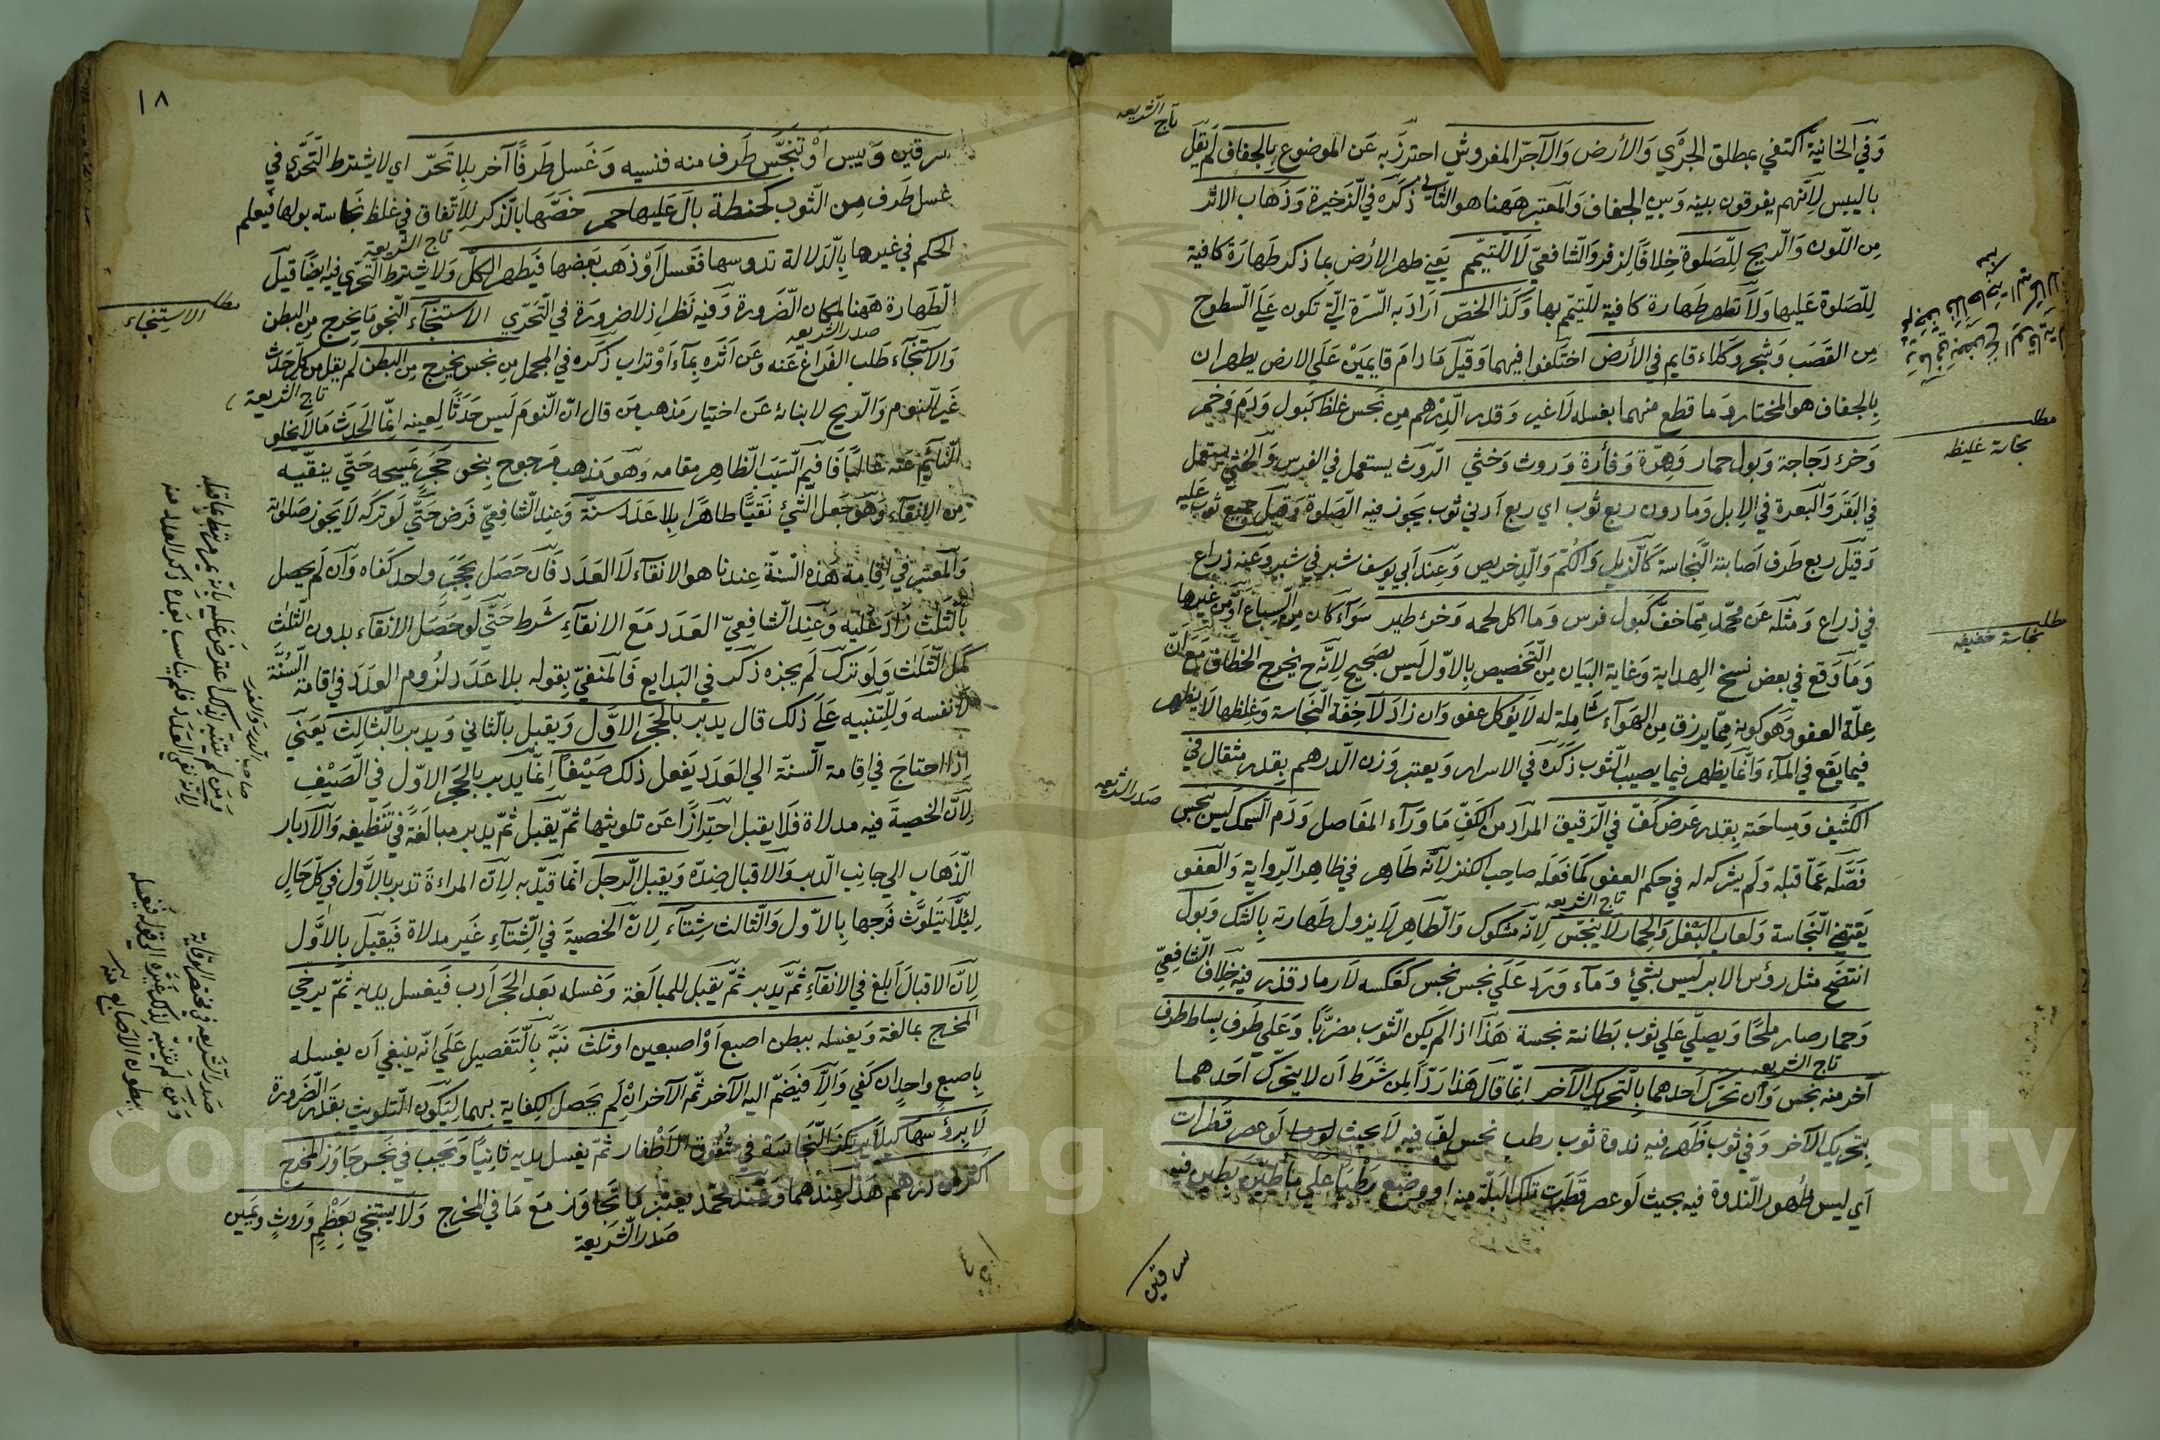 تاج الشريعه
وَفي الخانيّة اكتفي بمطلق الجرْي وَالأرض وَالآجرّ المفروش احترزَ به عَن الموضوع بالجفاف لَم يقل
باليبس لأنّهم يفرقون بينه وَبين الجفاف وَالمعتبر ههنا هو الثاني ذكرَه في الذخيرة وَذهَاب الاثر
مِن اللون وَالريح لِلصّلوة خِلافًا لزفر وَالشافعيّ لاَ للتيمّم يَعني طهر الأرض بما ذكر طَهارَة كافية
لِلصّلوة عَليها وَلاَ تطهر طهارة كافية للتيمّم بها وَكذا الخصّ ارَادَ به السّترة الّتي تكون عَلَي السّطوح
مِن القصَب وَشجر وَكلاء قايم في الأرض اختَلفوا فيهما وَقيل مَا دامَ قايمَيْن عَلَي الارض يطهران
بِالجفاف هو المختار وَما قطع منهما بغسله لاَ غير وَقدر الدِرْهم مِن نجس غلظ كبَول وَدَم وَخمر
وَخرءِ دَجاجة وَبول حمار وَهرّة وَفأرة وَروث وَخثي الرّوث يستعمل في الفرس وَالخثي يستعمل
في البَقر وَالبَعرة في الإبل وَما دون ربع ثوب اي ربع اَدني ثوب يَجوز فيه الصّلوة وَقيل جميع ثوب عَليه
وَقيل ربع طَرف اَصابته النّجاسة كالذيل وَالكمّ وَالدّخريص وَعِند اَبي يوسف شبر في شبر وَعَنه ذراع
في ذراع وَمثله عَن محمّد مِمّا خفّ كبول فرس وَما اكل لحمه وَخرء طير سَوآء كان مِن السباع اَوْ مِن غيرها
وَمَا وَقع في بعض نسخ الهداية وَغاية البيَان مِن التّخصيص بِالاوّل لَيس بصحيح لأنّه ح يخرج الخطّاف مَعَ اَنّ
عِلّة العفو وَهو كونه مِمّا يرزق مِن الهَوآء شَاملة له لاَ يؤكل عفو وَان زادَ لاَ خفّة النّجاسة وَغلظها لاَ يظهر
فيما يقع في المآء وَانّما يظهر فيما يصيب الثوب ذكرَه في الاسرار وَيعتبر وَزن الدّرهم بِقدر مثقال في
الكثيف وَمِساحَته بِقدر عَرض كفّ في الرّقيق المرَاد مِن الكفّ مَا وَرآء المفاصل وَدَم السّمك لَيس بنجس
فَصَّله عَمّا قبله وَلَم يشركه له في حكم العفو كمَا فعَله صاحِب الكنز لأنّه طَاهر في ظاهر الرّواية وَالعفو
تاج الشريعه
يَقتضي النّجَاسة وَلعاب البَغل وَالحِمار لاَ ينجّس لأنّه مشكوك وَالطّاهِر لاَ يزول طَهارته بِالشك وَبول
انتضح مثل رؤس الابر لَيس بشئ وَمآء وَرد عَلَي نجس نجس كعَكسه لاَ رماد قذر فيهِ خِلاف الشّافِعيّ
وَحمار صار مِلحًا وَيصلّي عَلي ثوب بَطانته نجسة هَذا اذ المَ يكن الثّوب مضرّبًا وَعَلي طَرف بِساط طرف
تاج الشريعه
آخر منه نجس وَاِن تحرّك اَحدهما بالتّحريك الآخر اِنّما قال هَذا رَدًّا لمن شرَط اَن لاَ يتحرّك اَحدهمَا
بِتحريك الآخر وَفي ثوب ظهَر فيه ندوة ثوب رطب نجس لفّ فيه لاَ بحيث لَو عصر قَطَرات
اَي ليس ظهور النّدوة فيه بحيث لَو عصر قَطَرت تلك البَلّة منه اَو وضع رَطبًا عَلَي مَا طيّن بطين فيه
مطلب
نجاسة غليظه
مطلب
نجاسة خفيفه
صدر الشريعه
سرقين
١٨
سرقين وَيبس اَوْ تنجَّس طَرف منه فنسيه وَغَسل طَرفًا آخر بلا تَحرّ اي لا يشترط التّحرّي في
غسل طَرف مِن الثّوب كحنطة بالَ عَليها حمر خصّها بالذكر لِلاتّفاق في غلظ نجاسة بولها فيعلم
الحكم في غيرها بِالدّلالة تدوسها فقسل اَوْ ذهَب بَعضها فيَطهر الكلّ وَلا يشترط التّحرّي فيه ايضًا قيل
تاج الشريعة
الطّهارة ههنا لمكان الضّرورة وَفيه نظر اذ لا ضرورَة في التّحرّي الاستنجآء النّجو مَا يخرج مِن البطن
صدر الشريعه
وَالاستنجآء طلب الفرَاغ عَنه وَعَن اَثره بمآء اَوْ تراب ذكرَه في المجمل مِن نجس يخرج مِن البطن لَم يقل من كلّ حَدَث
تاج الشريعة
غَير النّوم وَالرّيح لابنائه عَن اختيار مَذهب مَن قال انّ النّومَ لَيس حَدَثًا لِعينه اِنّما الحَدَث مَا لاَ يخلو
النّائم عَنه غالبًا فَاقيم السّبَب الظّاهِر مقامه وَهوَ مَذهب مَرجوح بِنحو حَجر يَمسحه حَتّي ينقّيه
مِن الإنقآء وَهوَ جَعل الشّئ نَقيًّا طاهرًا بلا عَدَد سنّة وَعِند الشّافِعيّ فَرض حَتّي لَو تركَه لاَ يَجوز صَلوته
وَالمعتبَر في اِقامة هَذه السّنّة عِندنا هو الانقآء لاَ العَدَد فَان حَصَل بحَجَر واحد كفَاه وَاَن لَم يَحصل
بِالثّلث زادَ عَليه وَعِند الشّافعيّ العَدَد مَعَ الانقآءِ شَرط حَتّي لَو حَصَل الانقآء بدون الثّلث
كمل الثّلث وَلَو تركَ لَم يجزه ذكر في البَدايع فَالمنفيّ بقوله بلا عَدَد لزُوم العَدَد في اقامة السُنَّة
لاَ نفسه وَلِلتّنبيه عَلَي ذَلك قال يدبر بالحَجَر الاَوَّل وَيقبل بالثّاني وَيدبر بالثّالث يَعني
اِذا احتاجَ في اِقامة السّنّة الي العَدَد يَفعل ذلك صَيْفًا اِنّما يدبر بِالحَجَر الاوّل في الصّيْفِ
لِاَنَّ الخصيَة فيه مدلاة فَلا يقبل احترَازًا عَن تلويثها ثمّ يقبل ثمّ يدبر مبالَغَةً في تنظيفه وَالاَدبار
الذّهاب الي جانِب الدّبر وَالاقبال ضِدّه وَيقبل الرّجل انّما قيّد به لِاَنّ المراءةَ تدبر بالاَوَّل في كلّ حَالٍ
لِئلاّ يَتلوّث فَرجها بِالاوّل وَالثّالث شِتآء لاِنّ الخصيَة في الشّتآءِ غَير مدلاة فَيقبَل بِالاوَّل
لِاَنّ الاقبال اَبلغ في الانقآءِ ثمّ يدبر ثمّ يقبل للمبالَغة وَغسله بَعد الحَجَر اَدب فَيغسل يديه ثمّ يرخي
المخرج بمالغة وَيغسله ببطن اصبع اَوْ اصبعين او ثلث نبَّه بِالتّفصيل عَلَي انّه ينبغي اَن يغسله
باِصبعٍ واحِدٍ ان كفَي وَاِلاّ فَيَضمّ اليه الآخر ثمّ الآخر ان لَم يَحصل الكفاية بهما لِيَكون التّلويث بقَدر الضّرورة
لاَ برؤسها كيلاَ يرتكز النّجاسَة في شقوق الاَظفار ثمّ يغسل يديه ثانيًا وَيَجب في نجَس جَاوَز المخرج
اكثر من درهم هَذا عِندهما وَعِندَ محَمّد يعتبَر مَا تجَاوَز مَعَ مَا في المخرج وَلاَ يستنجي بعَظمٍ وَروثٍ وَيَمين
صَدر الشّريعة
مطلب
الاستنجاء
صاحب الدرر والغرر
صدر الشّريعه